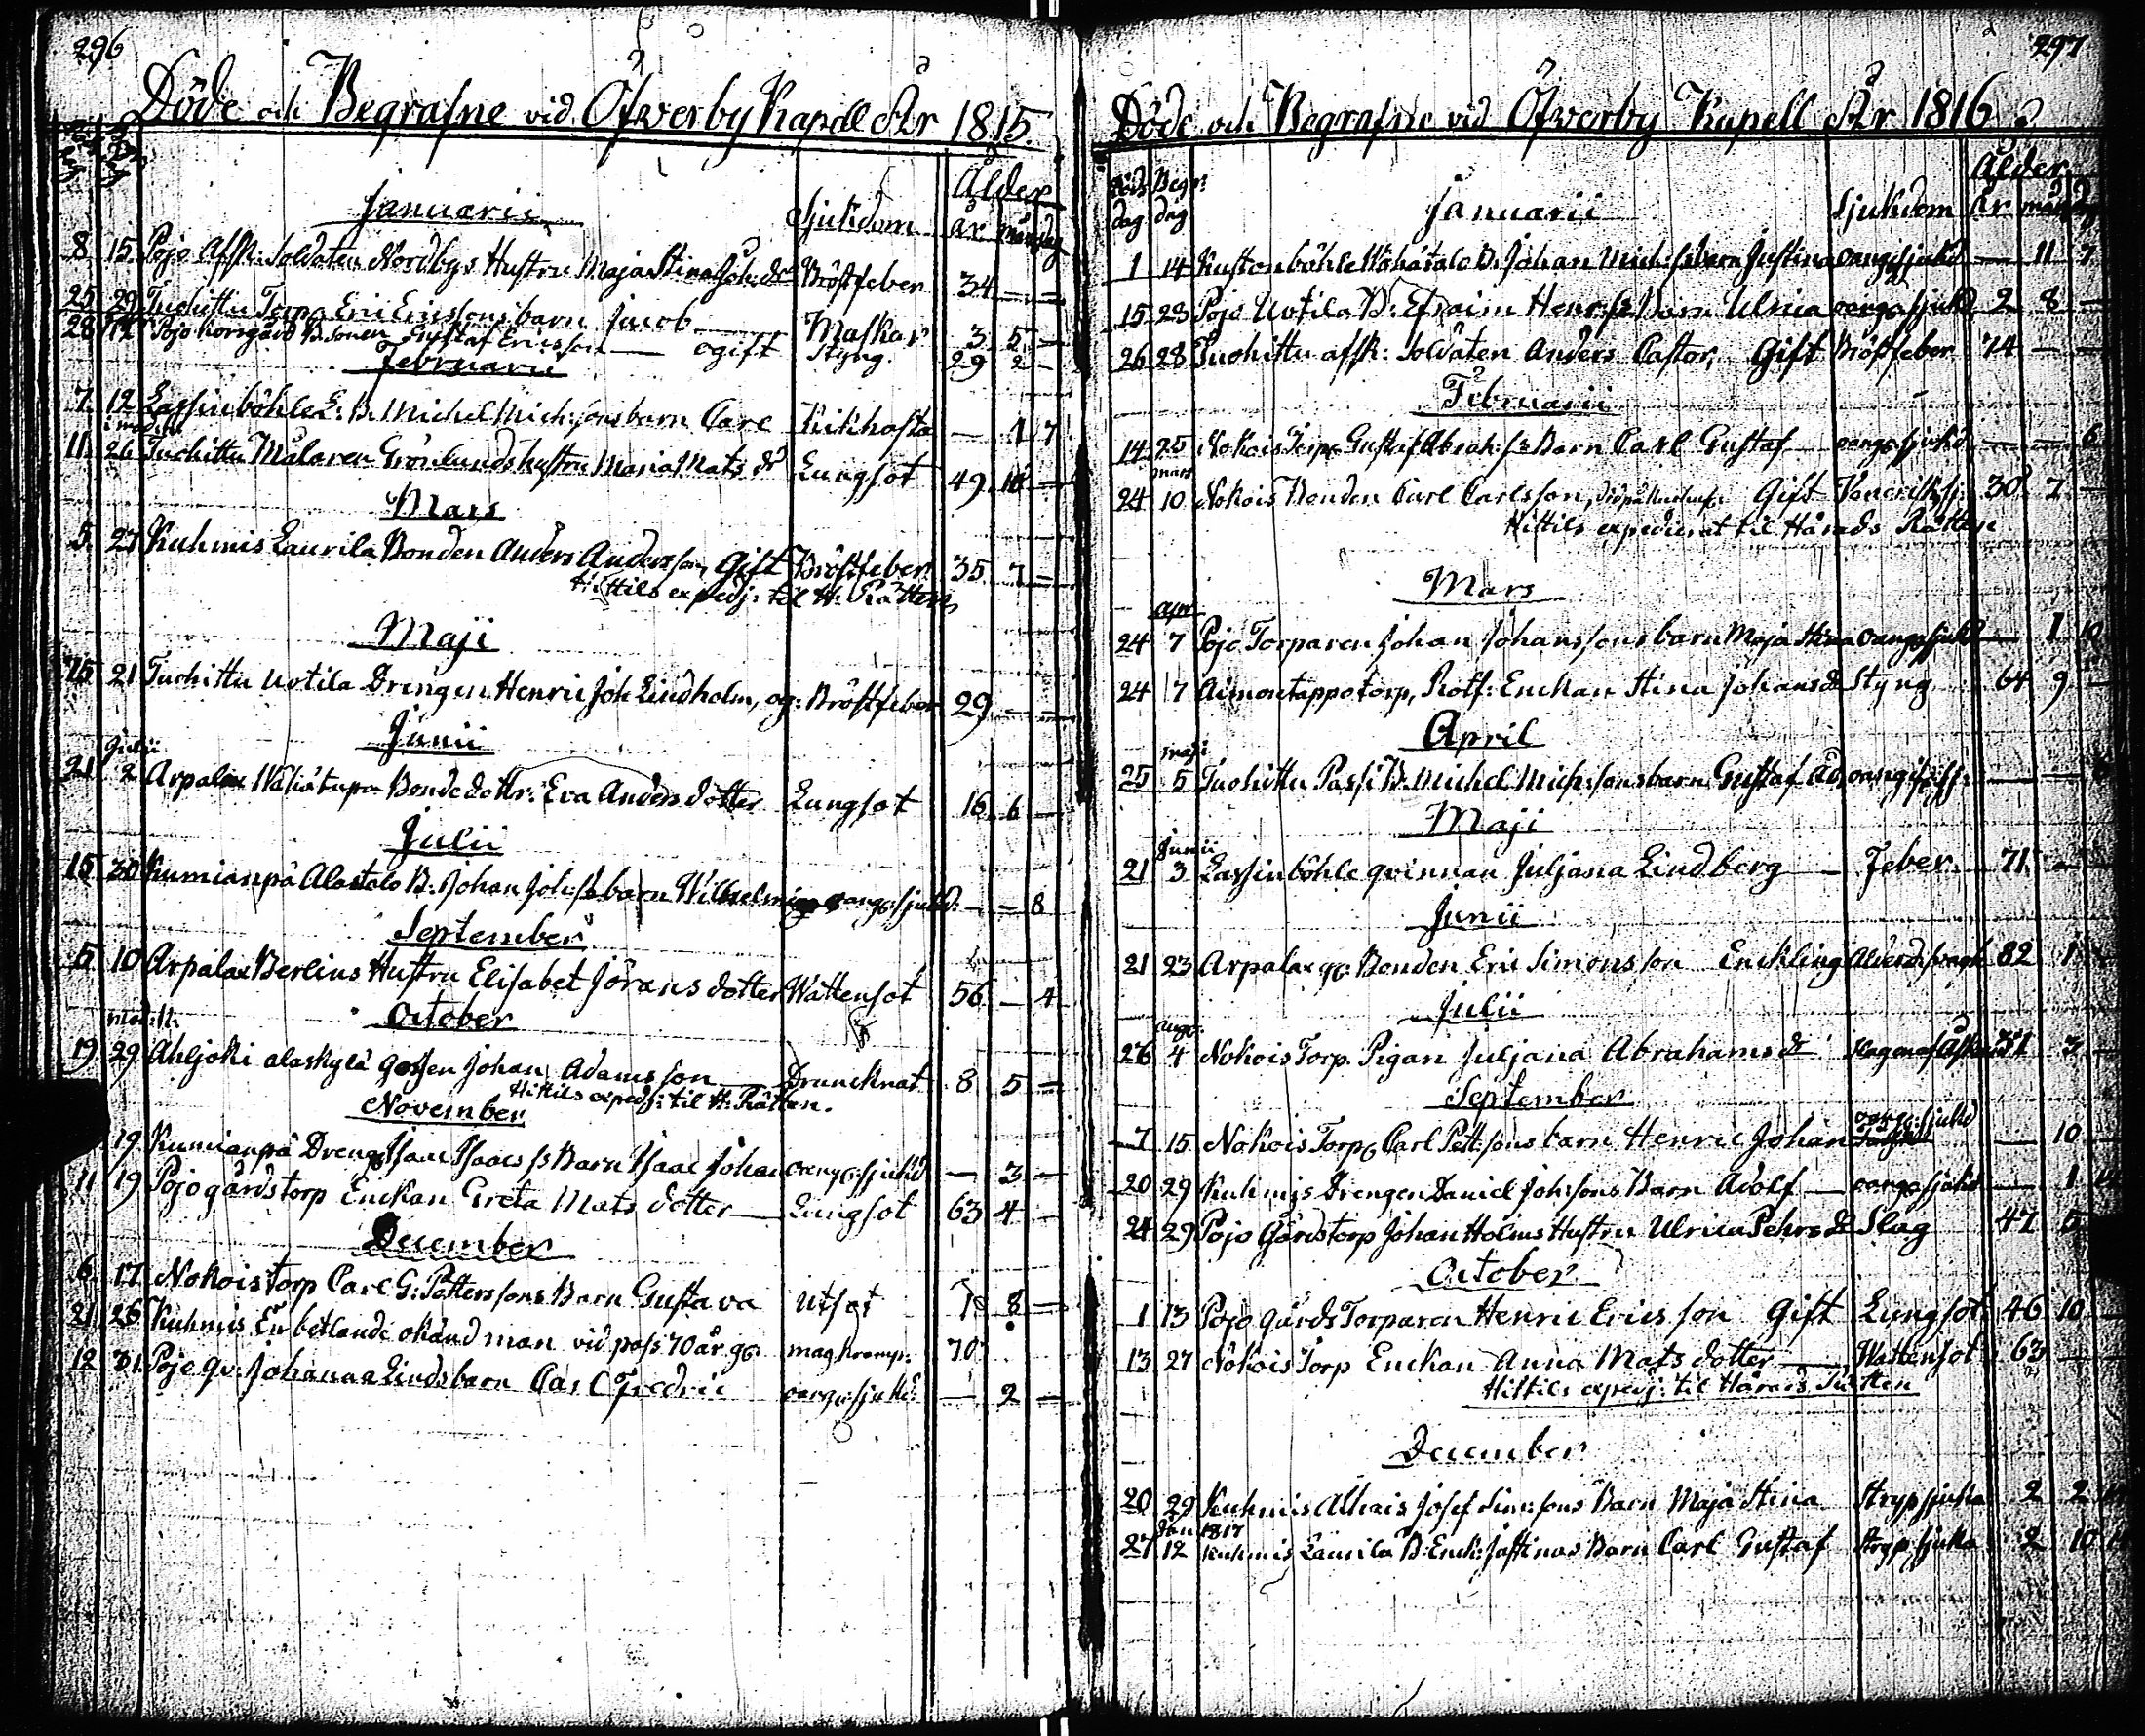 296
Döde och Begrafne vid Öfverby Kapell År 1815.
Ålder
Januarii Sjukdom år mån dag
8. 15. Pojo Afsk: Soldaten Nordbys Hustru Maja Stina Joh: dr Bröstfeber 34 — —
25 29 Tuohittu Torp: Eric Ericssons barn Jacob — Maskar 3 5 —
28 12 Pojo Korsgård B. Sonen Gustaf Ericsson — ogift Styng. 29 2 —
Februarii
7. 12 Lassinböhle L: B. Michel Mich:sons barn Carl Kikhosta — 1 7
11. 26 Tuohittu Målaren Grönlunds hustru Maria Mats dr Lungsot 49. 10 —
Mars
5. 27 Kuhmis Laurila Bonden Anders Andersson, Gift Bröstfeber 35 7 —
Hittils expedj: til H. Rätten
Maji
15 21 Tuohittu Uotila Drengen Henric Joh Lindholm, og: Bröstfeber 29 — —
Junii
Julii
21 2 Arpalax Wähätupa Bondedottr: Eva Anders dotter Lungsot 16 6 —
Julii
15 30 Kumianpä Alastalo B: Johan Joh:s barn Wilhelmina oange:sjukd. — — 8
September
5 10 Arpalax Berlins Hustru Elisabet Jörans dotter Wattensot 56 — 4
October
19. 29 Ahljoki alaskylä gossen Johan Adamsson — Druncknat 8 5 —
Hittils expedj: til H. Rätten.
November
19 Kumianpä Dreng: Isaac Isaacs s Barn Isaac Johan oange:sjukd — 3 —
11 19 Pojogårds torp Enckan Greta Mats dotter — Lungsot 63 4 —
December
6. 17 Nokois torp Carl G: Petterssons Barn Gustava Utsot 1 8 —
21. 26 Kuhmis En betlande okänd man vid pass 70 år g: magkramp: 70
12 31. Pojo qv: Johanna Linds barn Carl Fredric oange:sjukd: — 2 —
297
Döde och Begrafne vid Öfverby Kapell År 1816
Ålder
Döds dag Begr: dag Januarii Sjukdom År mån
1 14 Kustonböhle Wähätalo B. Johan Mich:s barn Justina oange sjukd — 11 7
15 23 Pojo Uotila B: Efraim Henr:s Barn Ulrica oange sjukd 2 8 —
26 28 Tuohittu afsk: Soldaten Anders Castor, Gift Bröstfeber 74 — —
Februarii
14 25 Nokois Torp: Gustaf Abrah:s Barn Carl Gustaf oange sjukd — — 6
mars
24 10 Nokois Bonden Carl Carlsson, Gift Venerisk sj: 30 7 —
Hittils expedierat til Härads Rätten
Mars
apr
24 7 Pojo Torparen Johan Johanssons barn Maja Stina oange sjukd — 1 10
24 7 Aimontappo torp, Rotf: Enckan Stina Johans dr Styng 64 9 —
April
maji
25 5 Tuohittu Passi B. Michel Mich:sons barn Gustaf Ad, oange:sj: — —
Maji
Junii
21 3 Lassinböhle qvinnan Juljana Lindberg — Feber. 71 —
Junii
21 23 Arpalax g: Bonden Eric Simonsson Enckling Ålderd:svagh 82 1
Julii
aug:
26 4 Nokois Torp. Pigan Juljana Abrahams dr Slagen af Åskan 31 3 —
September
7 15 Nokois Torp: Carl Pett:sons barn Henric Johan oange:sjukd — 10 —
20 29 Kuhmis Drengen Daniel Joh:sons Barn Adolf — oange sjukd — 1
24 29 Pojo Gårdstorp Johan Holms Hustru Ulrica Pehrs dr Slag 47 5
October
1 13 Pojo gårds Torparen Henric Ericsson Gift Lungsot 46 10 —
13 27 Nokois Torp Enckan Anna Mats dotter — Wattensot 63 —
Hittils expedj: til Härads Rätten
December
20 29 Kuhmis Alhais Josef Sim:sons Barn Maja Stina Strypsjuka 2 2
Jan 1817
27 12 Kuhmis Laurila B. Enck: Justinas Barn Carl Gustaf Strypsjuka 2 10